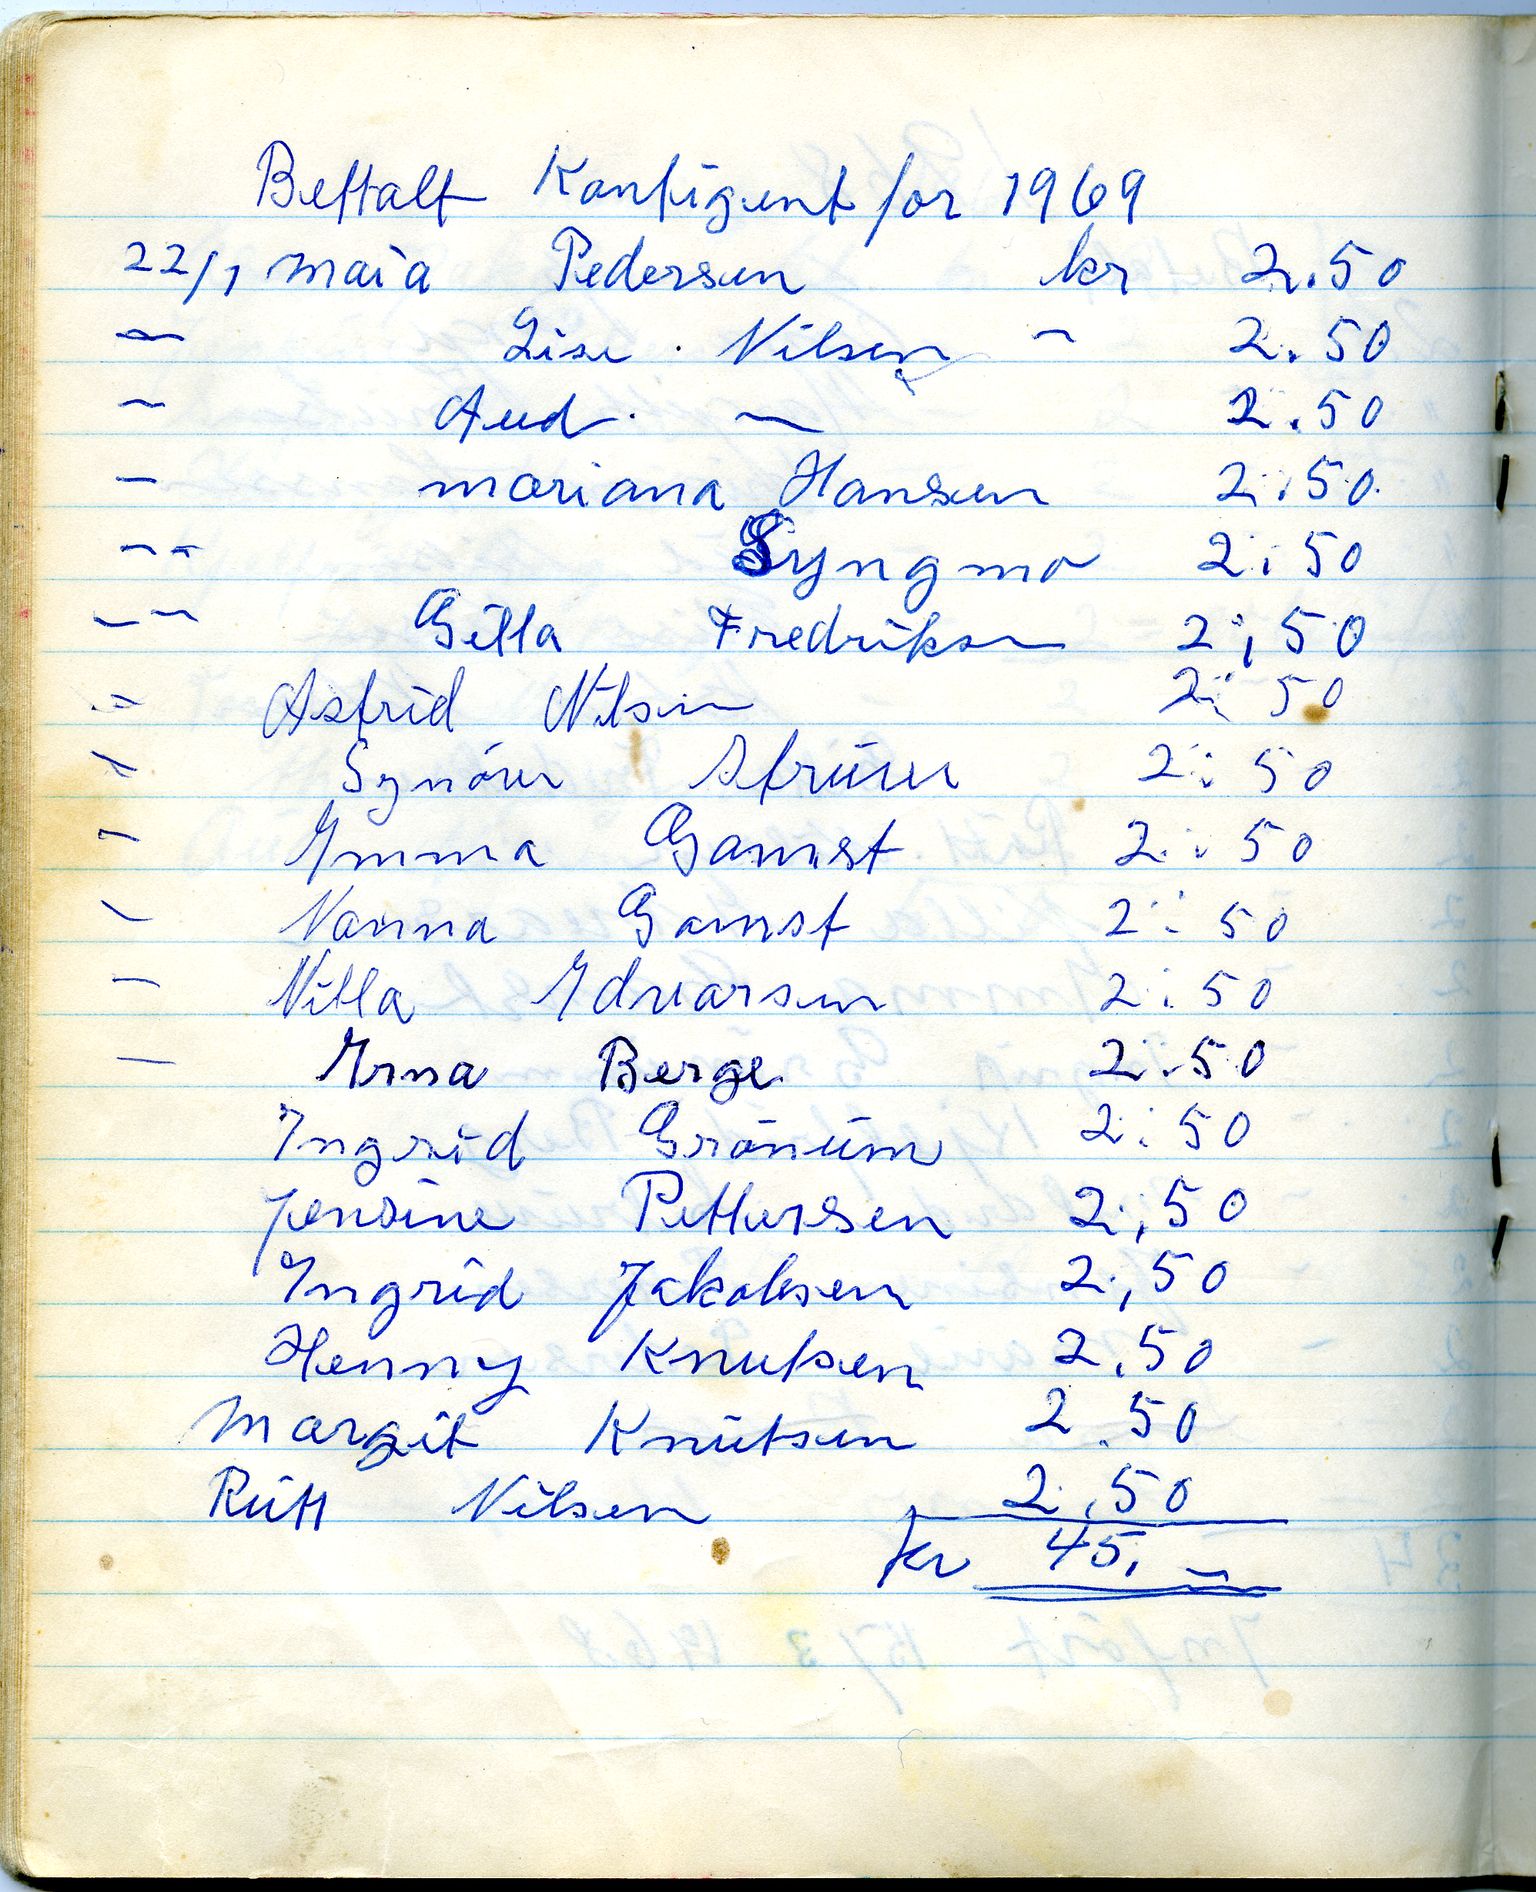 Bettalt Kontigent for 1969
22/1 Maia Pedersen kr 2.50
— Lise . Nilsen — 2.50
— Aud . — 2.50
— Mariana Hansen 2.50
— — Syngma 2.50
— — Gilla Fredriksen 2,50
— Astrid Nilsen 2.50
— Synöve Strüm 2.50
— Imma Gamst 2.50
— Nanna Gamst 2.50
— Nilla Edvarsen 2.50
— Erna Berge 2.50
Ingrid Grönüm 2.50
Jensine Pettersen 2,50
Ingrid Jakobsen 2,50
Henny Knutsen 2.50
Margit Knütsen 2.50
Rütt Nilsen 2.50
kr 45. —